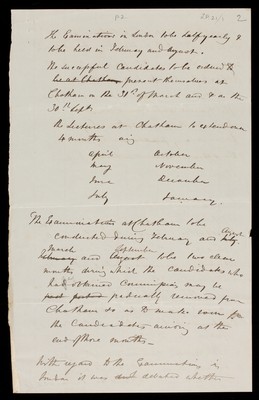 P2
2
The Examinations in London to be half yearly &
to be held in February and August.
The successful Candidates to be ordered to
be at Chatham present themselves at
Chatham on the 31st of March and & on the
30th Sept.
The Lectures at Chatham to extend over
4 months viz
April October
May November
June December
July January.
The Examinations at Chatham to be
conducted during February and July. August
March September
February and August to be two clear
months during which the Candidates who
had obtained Commissions may be
gradually removed from
Chatham so as to make room for
the Candidates arriving at the
end of those months—
With regard to the Examinations in
London it was debated whether